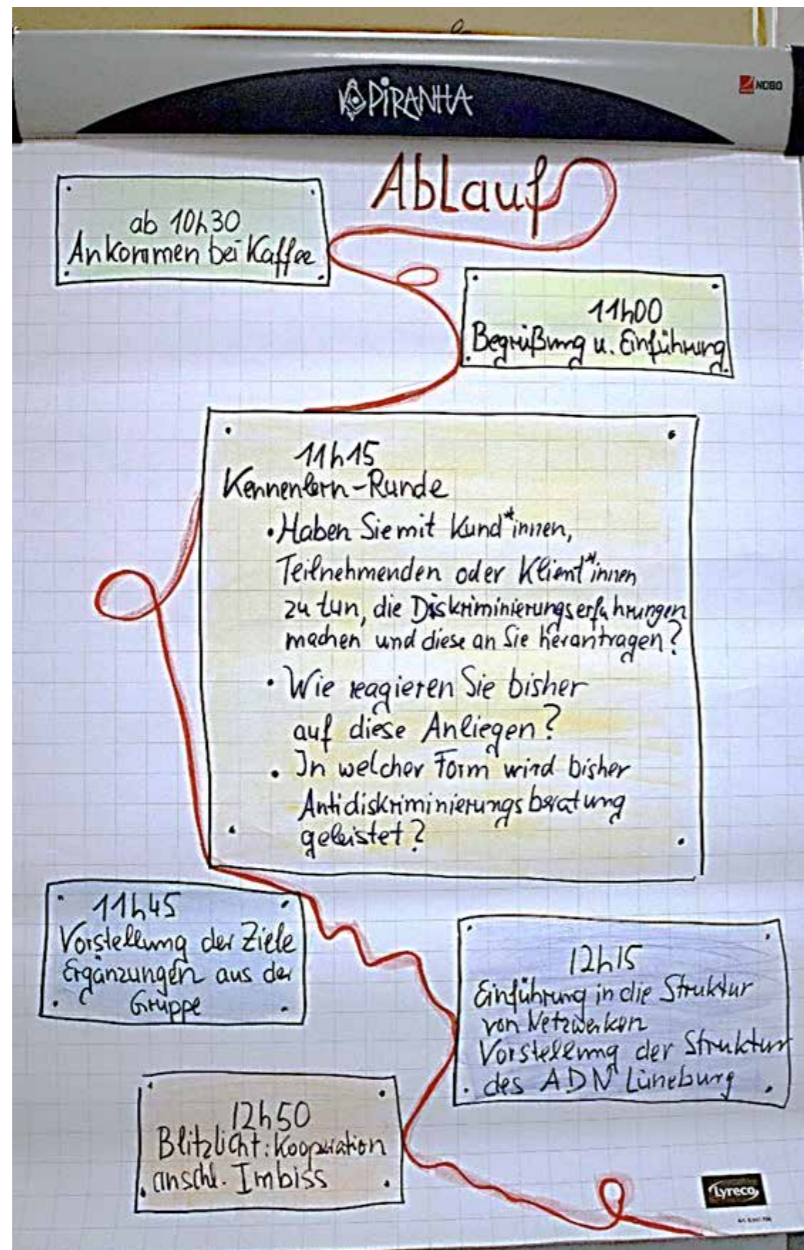 PiRANHA
NOBO
Ablauf
ab 10h30
Ankommen bei Kaffee
11h00
Begrüßung u. Einführung
11h15
Kennenlern-Runde
• Haben Sie mit Kund*innen,
Teilnehmenden oder Klient*innen
zu tun, die Diskriminierungserfahrungen
machen und diese an Sie herantragen?
• Wie reagieren Sie bisher
auf diese Anliegen?
• In welcher Form wird bisher
Antidiskriminierungsberatung
geleistet?
11h45
Vorstellung der Ziele
Ergänzungen aus der
Gruppe
12h15
Einführung in die Struktur
von Netzwerken
Vorstellung der Struktur
des ADN Lüneburg
12h50
Blitzlicht: Kooperation
anschl. Imbiss
Lyreco